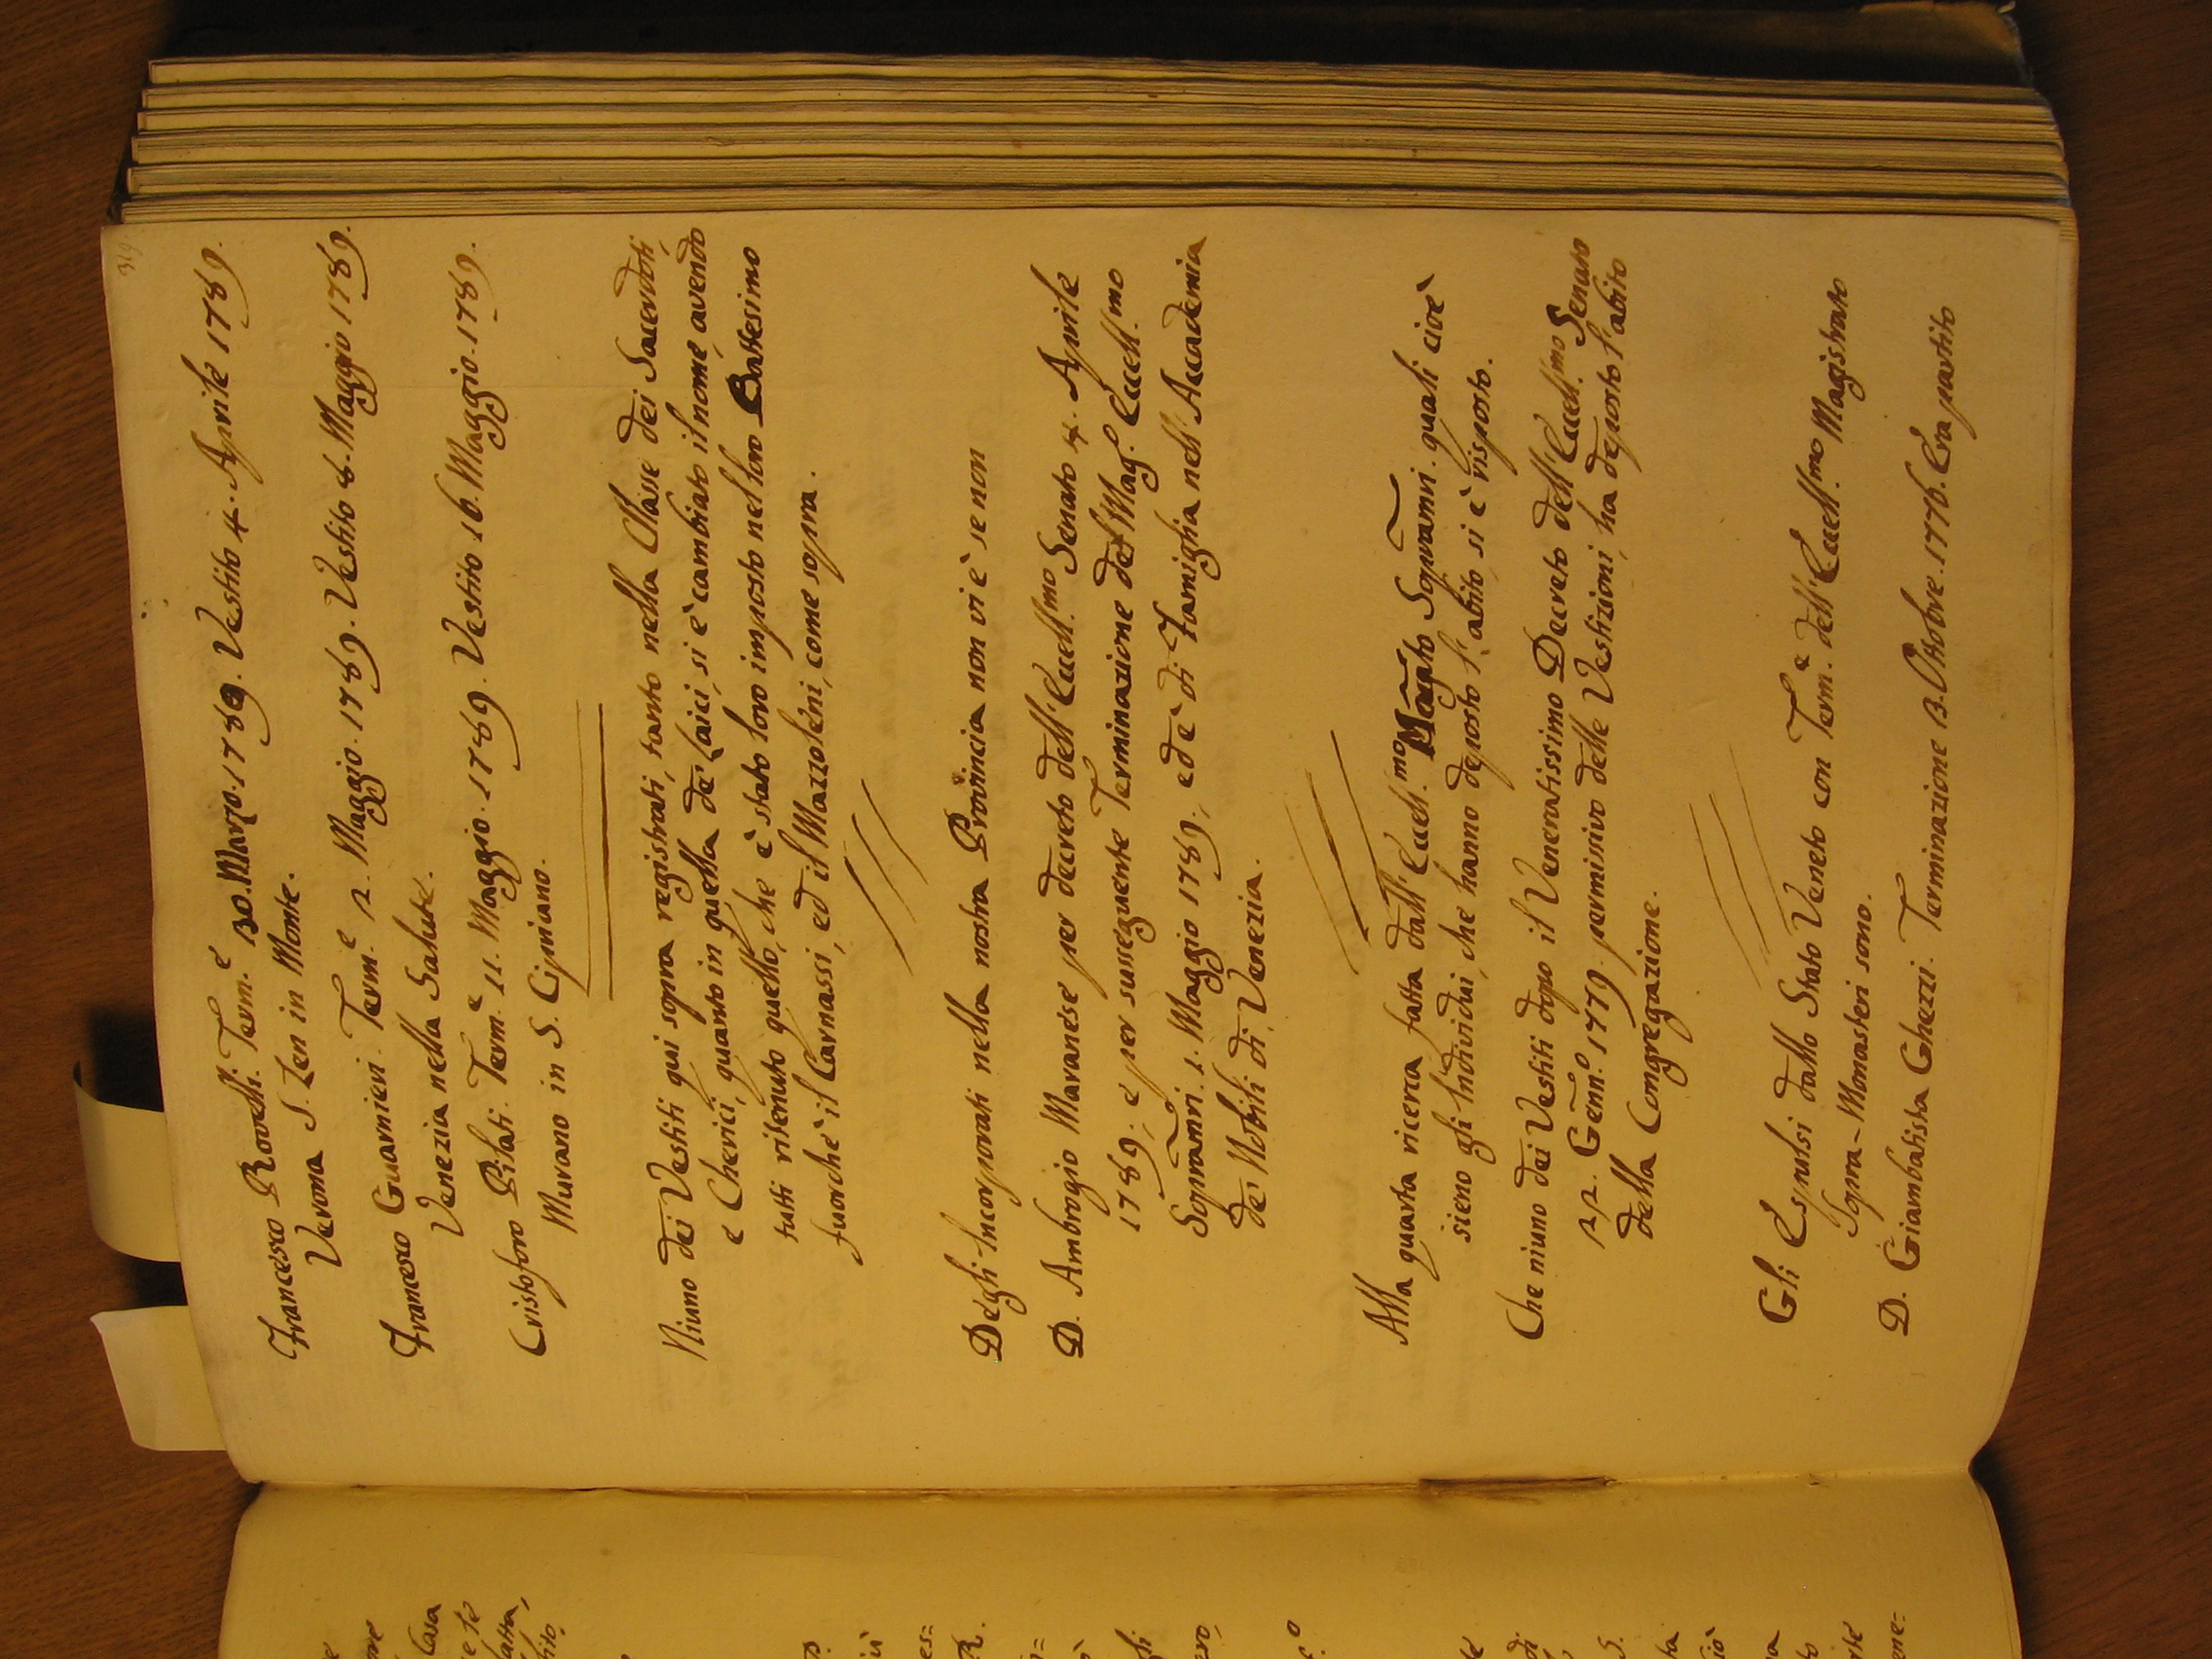 319
Francesco Rovelli. Term.e 30. Marzo. 1789. Vestito 4. Aprile 1789.
Verona S. Zen in Monte.
Francesco Guarnieri. Term.e 2. Maggio. 1789. Vestito 6. Maggio 1789.
Venezia nella Salute.
Cristoforo Pilati. Term.e 11. Maggio. 1789. Vestito 16. Maggio. 1789.
Murano in S. Cipriano.
Niuno dei Vestiti qui sopra registrati, tanto nella Classe dei Sacerdoti,
e Cherici, quanto in quella de' Laici, si è cambiato il nome, avendo
tutti ritenuto quello, che è stato loro imposto nel loro Battesimo
fuorchè il Carnassi, ed il Mazzoleni, come sopra.
Degli Incorporati nella nostra Provincia non vi è se non
D. Ambrogio Maranese per decreto dell'Eccell.mo Senato 4. Aprile
1789; e per susseguente Terminazione del Mag. Eccell.mo
Soprami. 1. Maggio 1789; ed è di Famiglia nell'Accademia
de' Nobili di Venezia.
Alla quarta ricerca fatta dall'Eccell.mo Magato Soprami. quali cioè
sieno gli Individui, che hanno deposto l'abito si è risposto.
Che niuno dei Vestiti dopo il Veneratissimo Decreto dell'Eccell.mo Senato
22. Genn.o 1779. permissivo delle Vestizioni, ha deposto l'abito
della Congregazione.
Gli Espulsi dallo Stato Veneto con Term.e dell'Eccell.mo Magistrato
Sopra-Monasteri sono.
D. Giambatista Ghezzi. Terminazione 3. Ottobre. 1776. Era partito